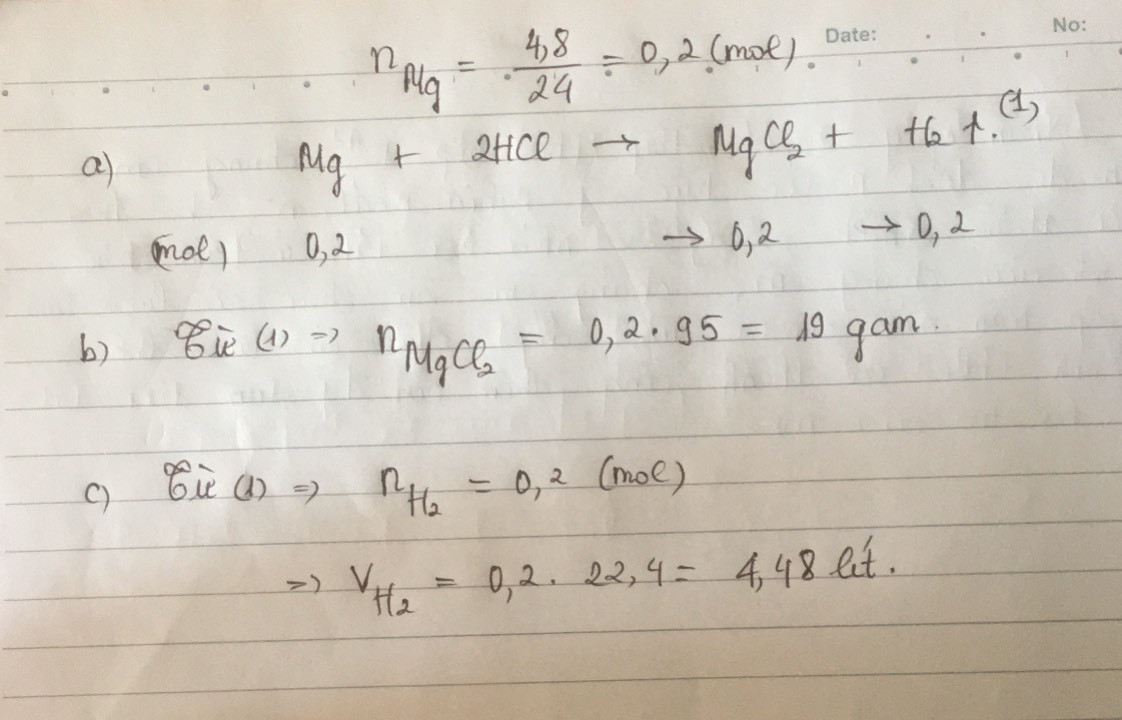 Date: No:
n_Mg = 4,8/24 = 0,2 (mol)
a) Mg + 2HCl → MgCl₂ + H₂ ↑. (1)
(mol) 0,2 → 0,2 → 0,2
b) Từ (1) => n_MgCl₂ = 0,2 . 95 = 19 gam.
c) Từ (1) => n_H₂ = 0,2 (mol)
=> V_H₂ = 0,2 . 22,4 = 4,48 lít.